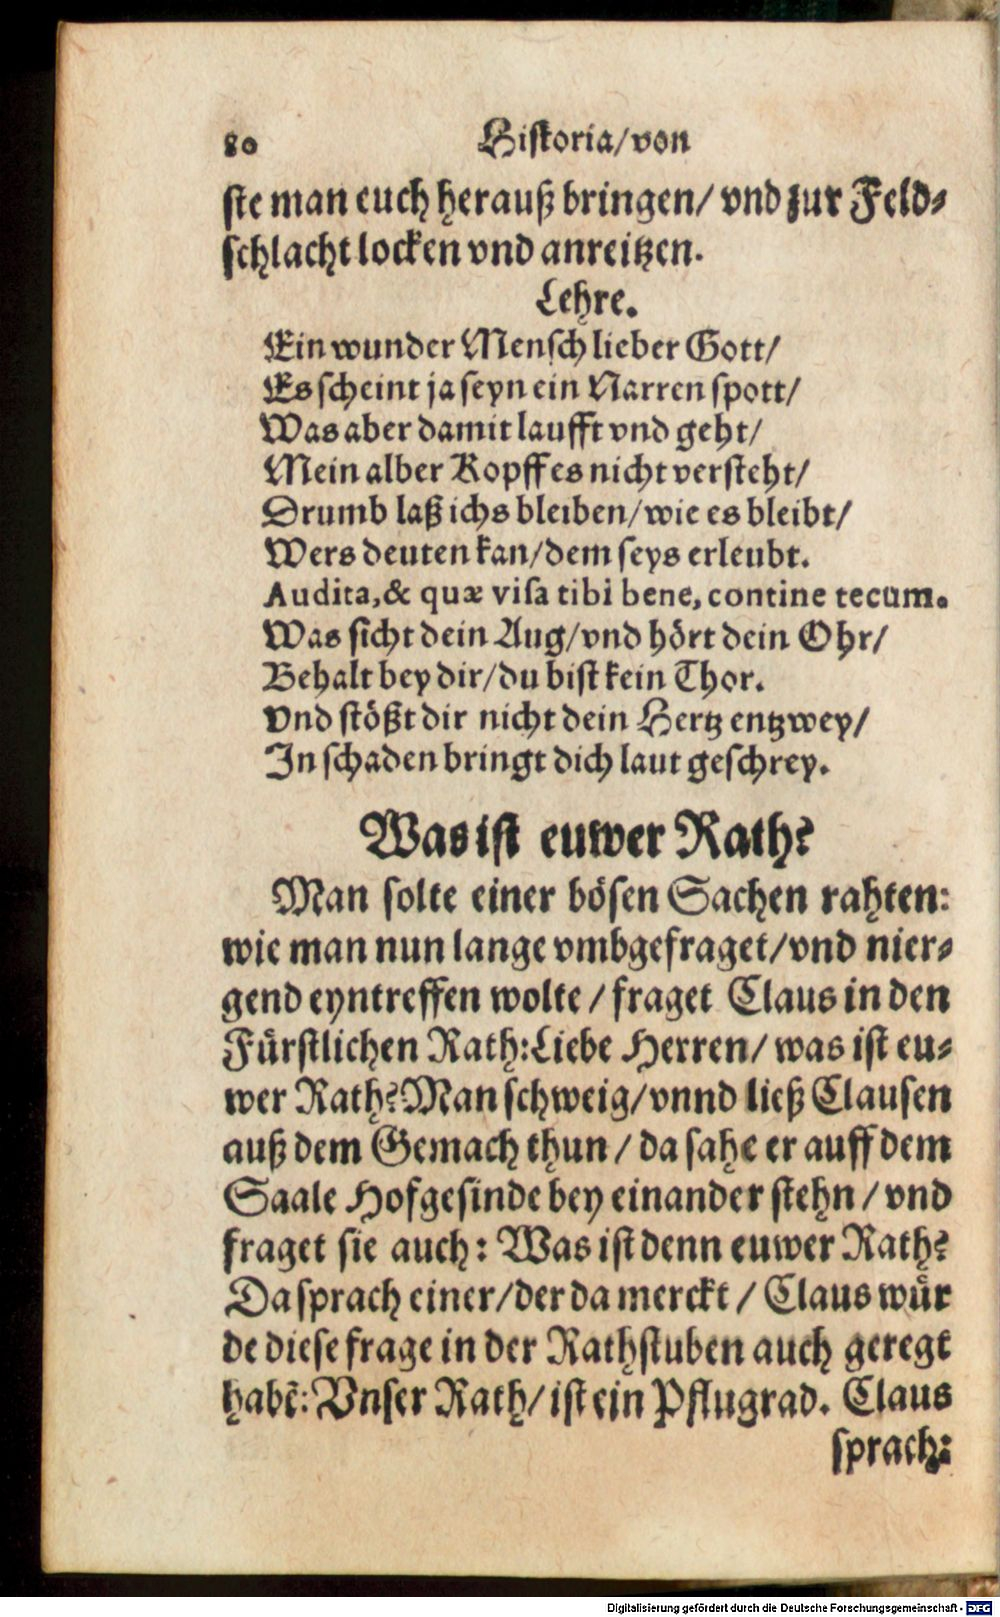 80 Historia/von
ste man euch herauß bringen/ vnd zur Feld⸗
schlacht locken vnd anreitzen.
Lehre.
Ein wunder Mensch lieber Gott/
Es scheint ja seyn ein Narren spott/
Was aber damit laufft vnd geht/
Mein alber Kopff es nicht versteht/
Drumb laß ichs bleiben/wie es bleibt/
Wers deuten kan/dem seys erleubt.
Audita,& quæ visa tibi bene, contine tecum.
Was sicht dein Aug/vnd hört dein Ohr/
Behalt bey dir/du bist kein Thor.
Vnd stößt dir nicht dein Hertz entzwey/
In schaden bringt dich laut geschrey.
Was ist euwer Rath?
Man solte einer bösen Sachen rahten:
wie man nun lange vmbgefraget/vnd nier⸗
gend eyntreffen wolte / fraget Claus in den
Fürstlichen Rath:Liebe Herren/ was ist eu⸗
wer Rath?Man schweig/vnnd ließ Clausen
auß dem Gemach thun / da sahe er auff dem
Saale Hofgesinde bey einander stehn / vnd
fraget sie auch: Was ist denn euwer Rath?
Da sprach einer/der da merckt / Claus wür
de diese frage in der Rathstuben auch geregt
habē: Vnser Rath/ ist ein Pflugrad. Claus
sprach:
Digitalisierung gefördert durch die Deutsche Forschungsgemeinschaft - DFG